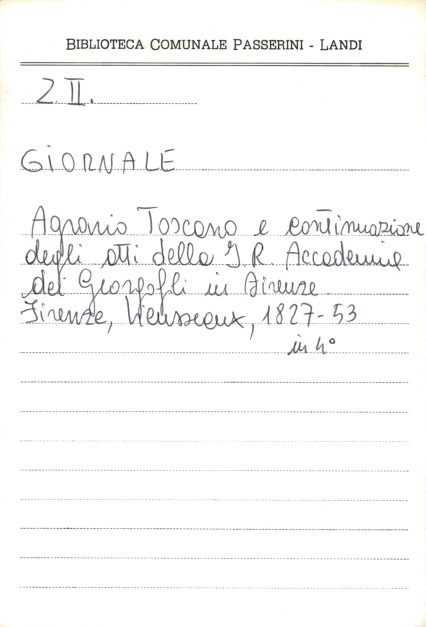 BIBLIOTECA COMUNALE PASSERINI - LANDI
Z. II.
GIORNALE
Agrario Toscano e continuazione
degli atti della I R. Accademia
dei Georgofili in Firenze
Firenze, Vieusseux, 1827-53
in 4°